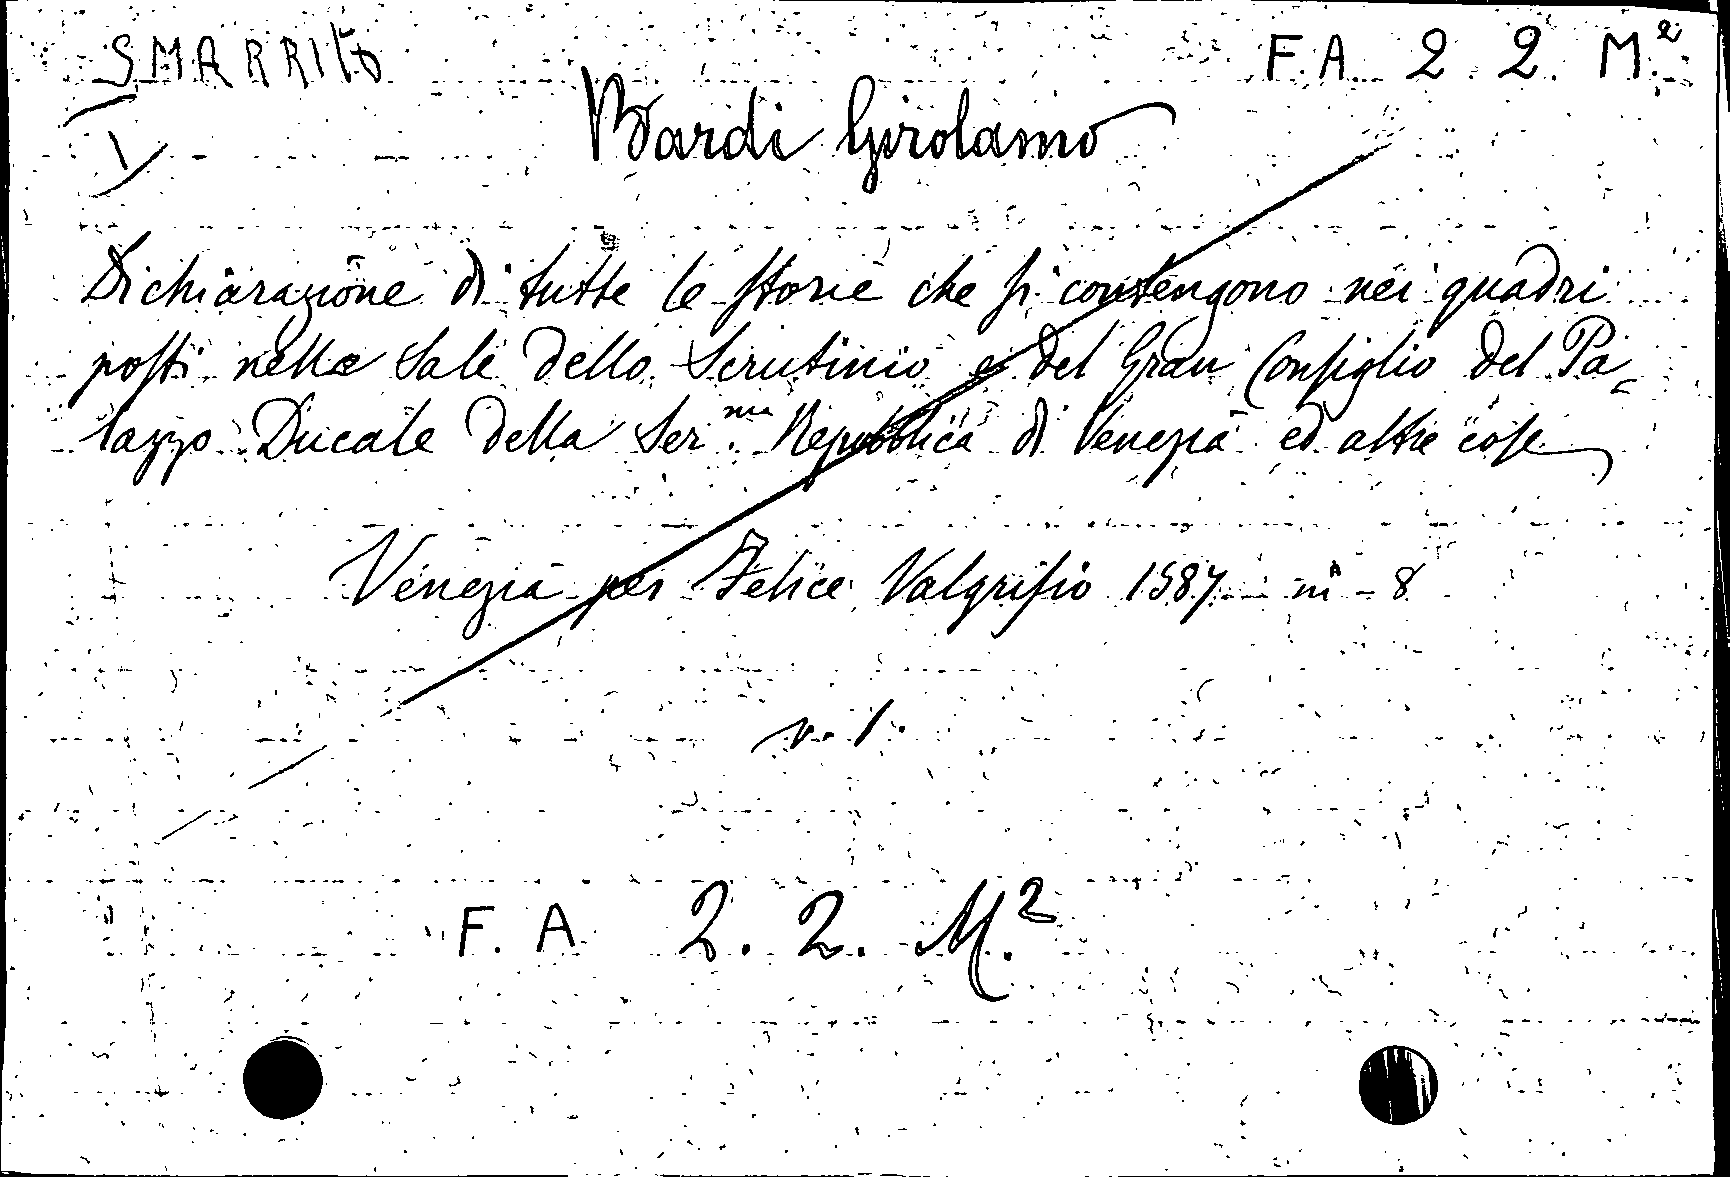 SMARRITO
F. A. 2. 2. M.²
1
Bardi Girolamo
Dichiarazione di tutte le ſtorie che ſi contengono nei quadri
poſti nelle Sale dello Scrutinio e del Gran Conſiglio del Pa-
lazzo Ducale della Ser.ma Repubblica di Venezia ed altre coſe
Venezia per Felice Valgriſio 1587 in - 8
v. 1.
F. A. 2. 2. M.²